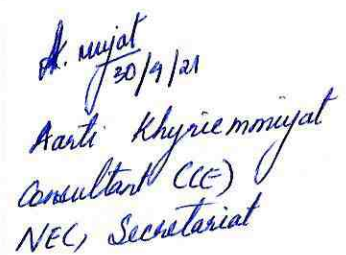 A. miyat
30/9/21
Aarti Khyriemmiyat
Consultant (CE)
NEC, Secretariat